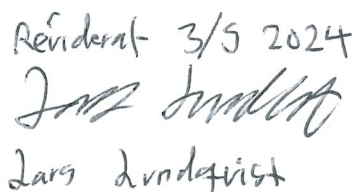 Reviderat 3/5 2024
Lars Lundqvist